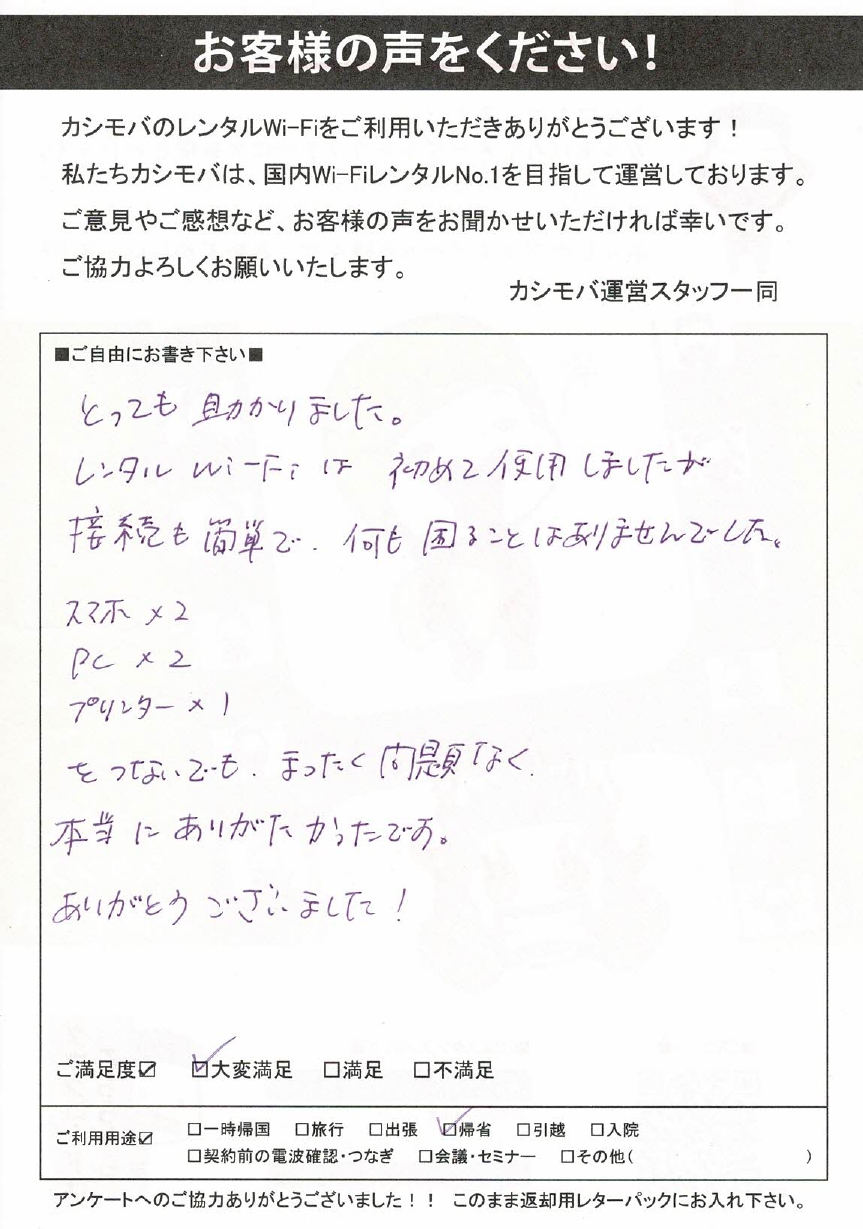 お客様の声をください!
カシモバのレンタルWi-Fiをご利用いただきありがとうございます！
私たちカシモバは、国内Wi-FiレンタルNo.1を目指して運営しております。
ご意見やご感想など、お客様の声をお聞かせいただければ幸いです。
ご協力よろしくお願いいたします。
カシモバ運営スタッフ一同
■ご自由にお書き下さい■
とっても助かりました。
レンタルWi-Fiは 初めて使用しましたが
接続も簡単で、何も困ることはありませんでした。
スマホ×2
PC×2
プリンター×1
をつないでも、まったく問題なく、
本当にありがたかったです。
ありがとうございました!
ご満足度☑ ☑大変満足 □満足 □不満足
ご利用用途☑ □一時帰国 □旅行 □出張 ☑帰省 □引越 □入院
□契約前の電波確認・つなぎ □会議・セミナー □その他( )
アンケートへのご協力ありがとうございました！！ このまま返却用レターパックにお入れ下さい。